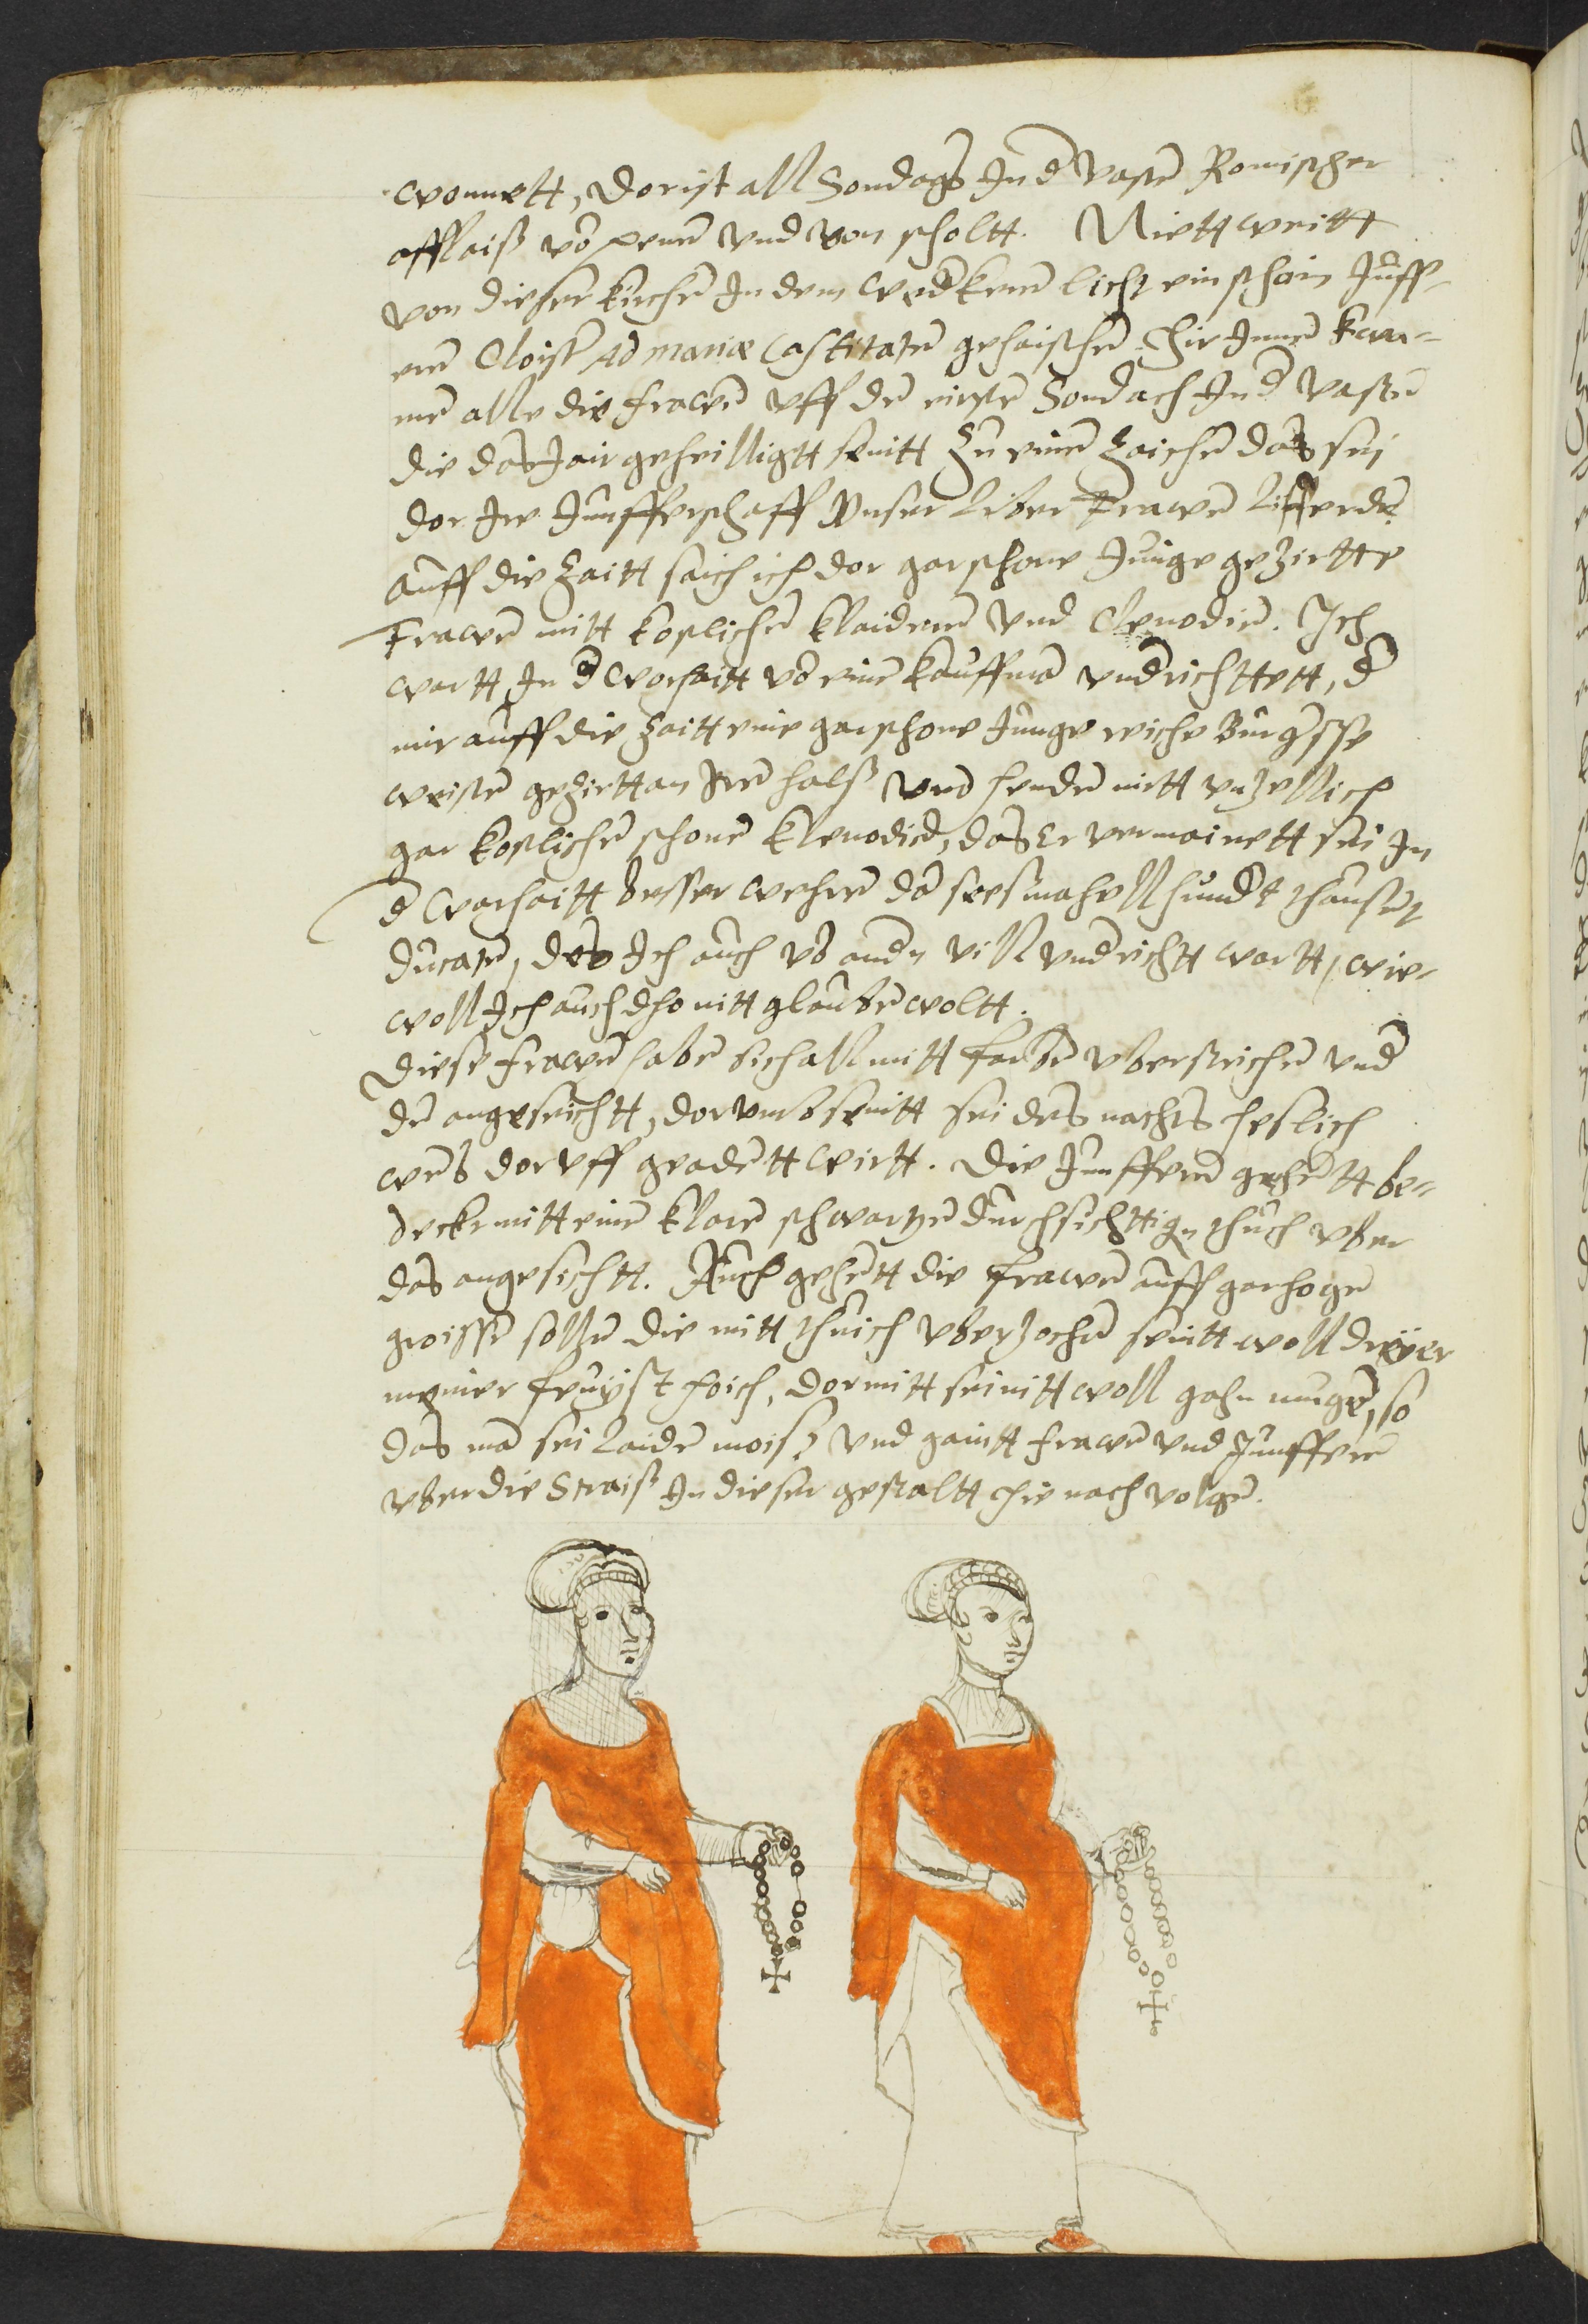 wonnett, dor ist all Sondags In d vasten Romischer
afflaiß vo penen vnd von scholtt. Niett weitt
von dieser kirchen In dem wederkeren licht ein schoin Juff-
eren Cloister Ad mariæ Castitaten gehaischen. Hir Innen kom-
men alle die frawen vff den eirsten Sondach In d vasten
die das Jair geheilligtt seintt zu einem zaichen das sei
dor Ire Junfferschaff Vnser Lieber Frawen lifferden
auff die zaitt saich ich dor gar schone Junge gezirtte
Frawen mitt kostlichen klaideren vnd Clenodien. Ich
wartt In d worhaitt vo einem kauffman vnderichttett, d
mir auff die zaitt eine gar schone Junge riche Burgersche
weisten gezirtt an Iren halß vnd henden mitt vnzellich
gar kostlichen schonen klenodien, das er vermainett sei In
d worhaitt besser weren dan seesmahell hundert thausent
ducaten, des Ich auch vo andern vill vnderichtt wartt, wie-
woll Ich auch dho nitt glauben woltt.
Diese frawen haben sich all mitt farben vberstrichen vnder
den angesichtt, dorumb seintt sei des nachts heslich
wers dor vff geadertt wirtt. Die Junfferen gehentt be-
decke mitt einem klaren schwartzen durchsichttigen thuch vber
das angesichtt. Auch gehentt die frawen auff gar hogen
groissen sollen die mitt thuich vberzochen seintt woll dreyer
meiner feuyst hoich, dor mitt sei nitt woll gahn mugen, so
das man sei laiden moiß vnd gaintt frawen vnd Junfferen
vber die Straiß In dieser gestaltt hie nach volgen.